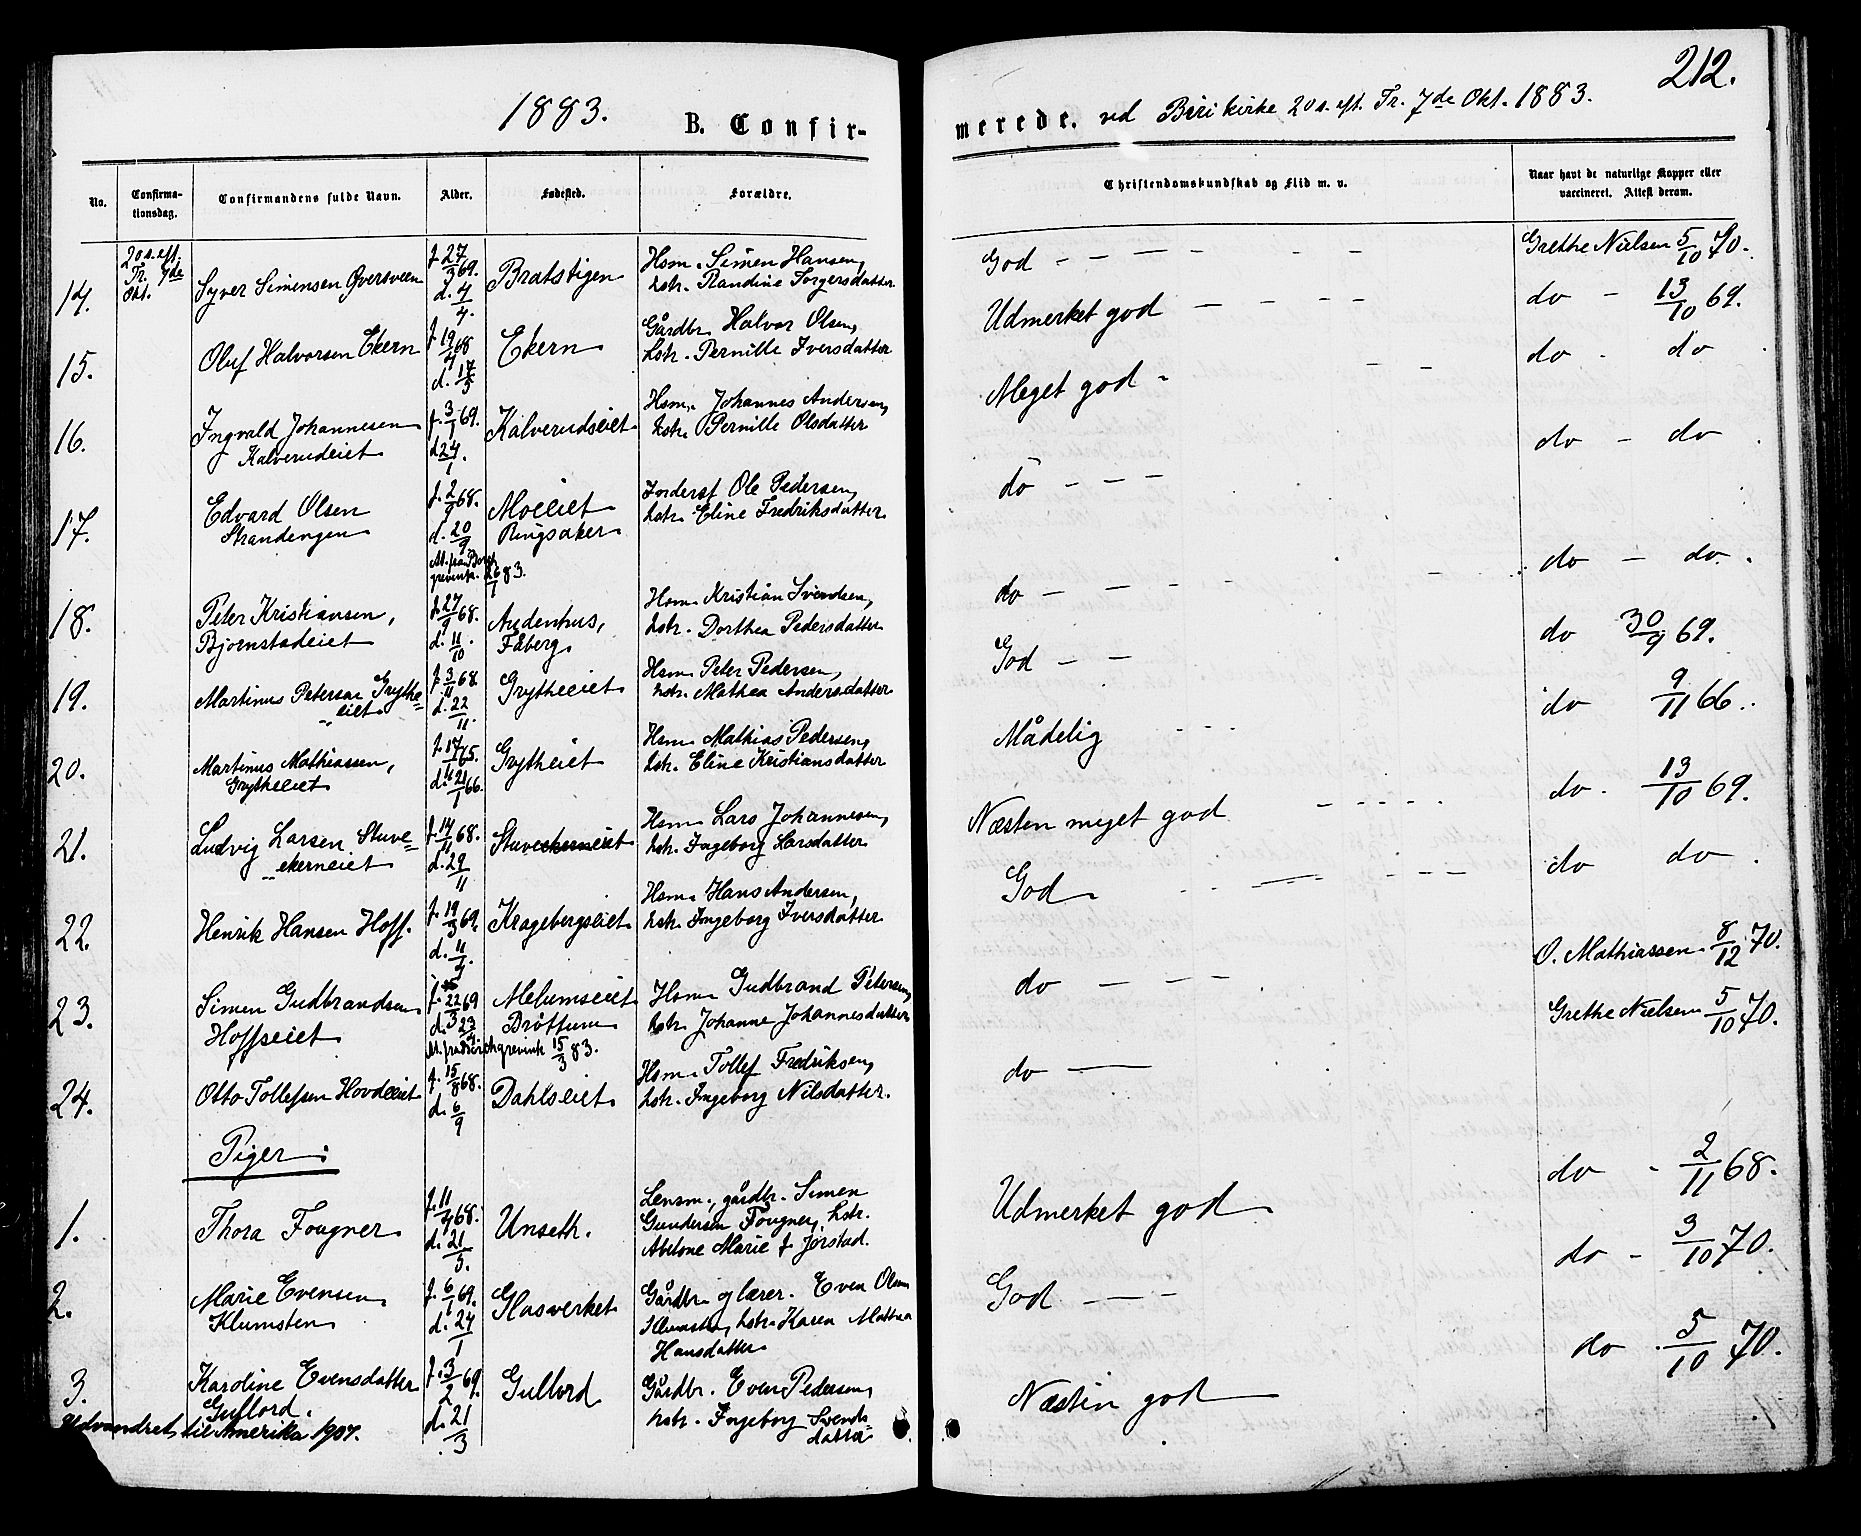 1883.
B. Confir-
No.
Confirma-
tionsdag.
Confirmandens fulde Navn.
Alder.
Fødested.
Forældre.
20 s. eft.
Tr. 7de
Okt.
14.
Syver Simensen
f. 27/3 69.
d. 4/4.
Bratstigen
Hsm. Simen Hansen,
hstr. Randine Torgersdatter
15.
Oluf Halvorsen Ekern
f. 19/4 68
d. 17/5
Ekern
Gårdbr. Halvor Olsen,
hstr. Pernille Iversdatter
16.
Ingvald Johannesen
Kalverudeiet
f. 3/1 69.
d. 24/1.
Kalverudseiet
Hsm. Johannes Andersen,
hstr. Pernille Olsdatter
17.
Edvard Olsen
Strandengen
f. 2/9 68.
d. 20/9
Moeiet
Ringsaker
Inderst Ole Pedersen,
hstr. Eline Fredriksdatter
18.
Peter Kristiansen,
Bjørnstadeiet
f. 27/9 68.
d. 11/10
Audenhus,
Fåberg
Hsm. Kristian Svendsen,
hstr. Dorthea Pedersdatter
19.
Martinus Petersen Grythe=
eiet
f. 3/11 68
d. 22/11.
Grytheeiet
Hsm. Peter Pedersen,
hstr. Mathea Andersdatter
20.
Martinus Mathiassen,
Grytheeiet
f. 17/11 65.
d. 21/1 66.
Grytheiet
Hsm. Mathias Pedersen,
hstr. Eline Kristiansdatter
21.
Ludvig Larsen Stuve=
ekerneiet
f. 14/11 68.
d. 29/11
Stuveekerneiet
Hsm. Lars Johannesen,
hstr. Ingeborg Larsdatter
22.
Henrik Hansen Hoff.
f. 19/3 69.
d. 11/4.
Kragebergseiet
Hsm. Hans Andersen,
hstr. Ingeborg Iversdatter
23.
Simen Gudbrandsen
Hoffseiet
f. 22/3 69
Melumseiet
Brøttum
Hsm. Gudbrand Petersen,
hstr. Johanne Johannesdatter
15/3 83.
24.
Otto Tollefsen Hovdeeiet
f. 15/8 68.
d. 6/9
Dahlseiet
Hsm. Tollef Fredriksen,
hstr. Ingeborg Nilsdatter.
Piger:
1.
Thora Fougner
f. 11/4 68.
d. 21/5.
Unseth.
Lensm., gårdbr. Simen
Gundersen Fougner, hstr.
Abelone Marie f. Jørstad.
2.
Marie Evensen
Klumsten
f. 6/1 69.
d. 24/1
Glasverket
Gårdbr. og lærer. Even Olsen
Klumsten, hstr. Karen Mathea
Hansdatter
3.
Karoline Evensdatter
Gullord.
f. 3/2 69.
d. 21/3
Gullord
Gårdbr. Even Pedersen,
hstr. Ingeborg Svends-
datter
Udvandret til Amerika 1907.
212.
merede. ved Biri kirke 20 s. eft. Tr. 7de Okt. 1883.
Christendomskundskab og Flid m. v.
Naar havt de naturlige Kopper eller
vaccineret. Attest derom.
God
Grethe Nielsen 5/10 70.
Udmerket god
do - 13/10 69.
Meget god
do - do
do
do - do
do
do - do.
God
do 30/9 69.
Mådelig
do 9/11 66.
Næsten meget god
do. 13/10 69.
God
do do
do
O. Mathiassen 8/12 70.
do
Grethe Nielsen 5/10 70.
Udmerket god
do - 2/11 68.
God
do - 3/10 70.
Næsten god
do 5/10 70.